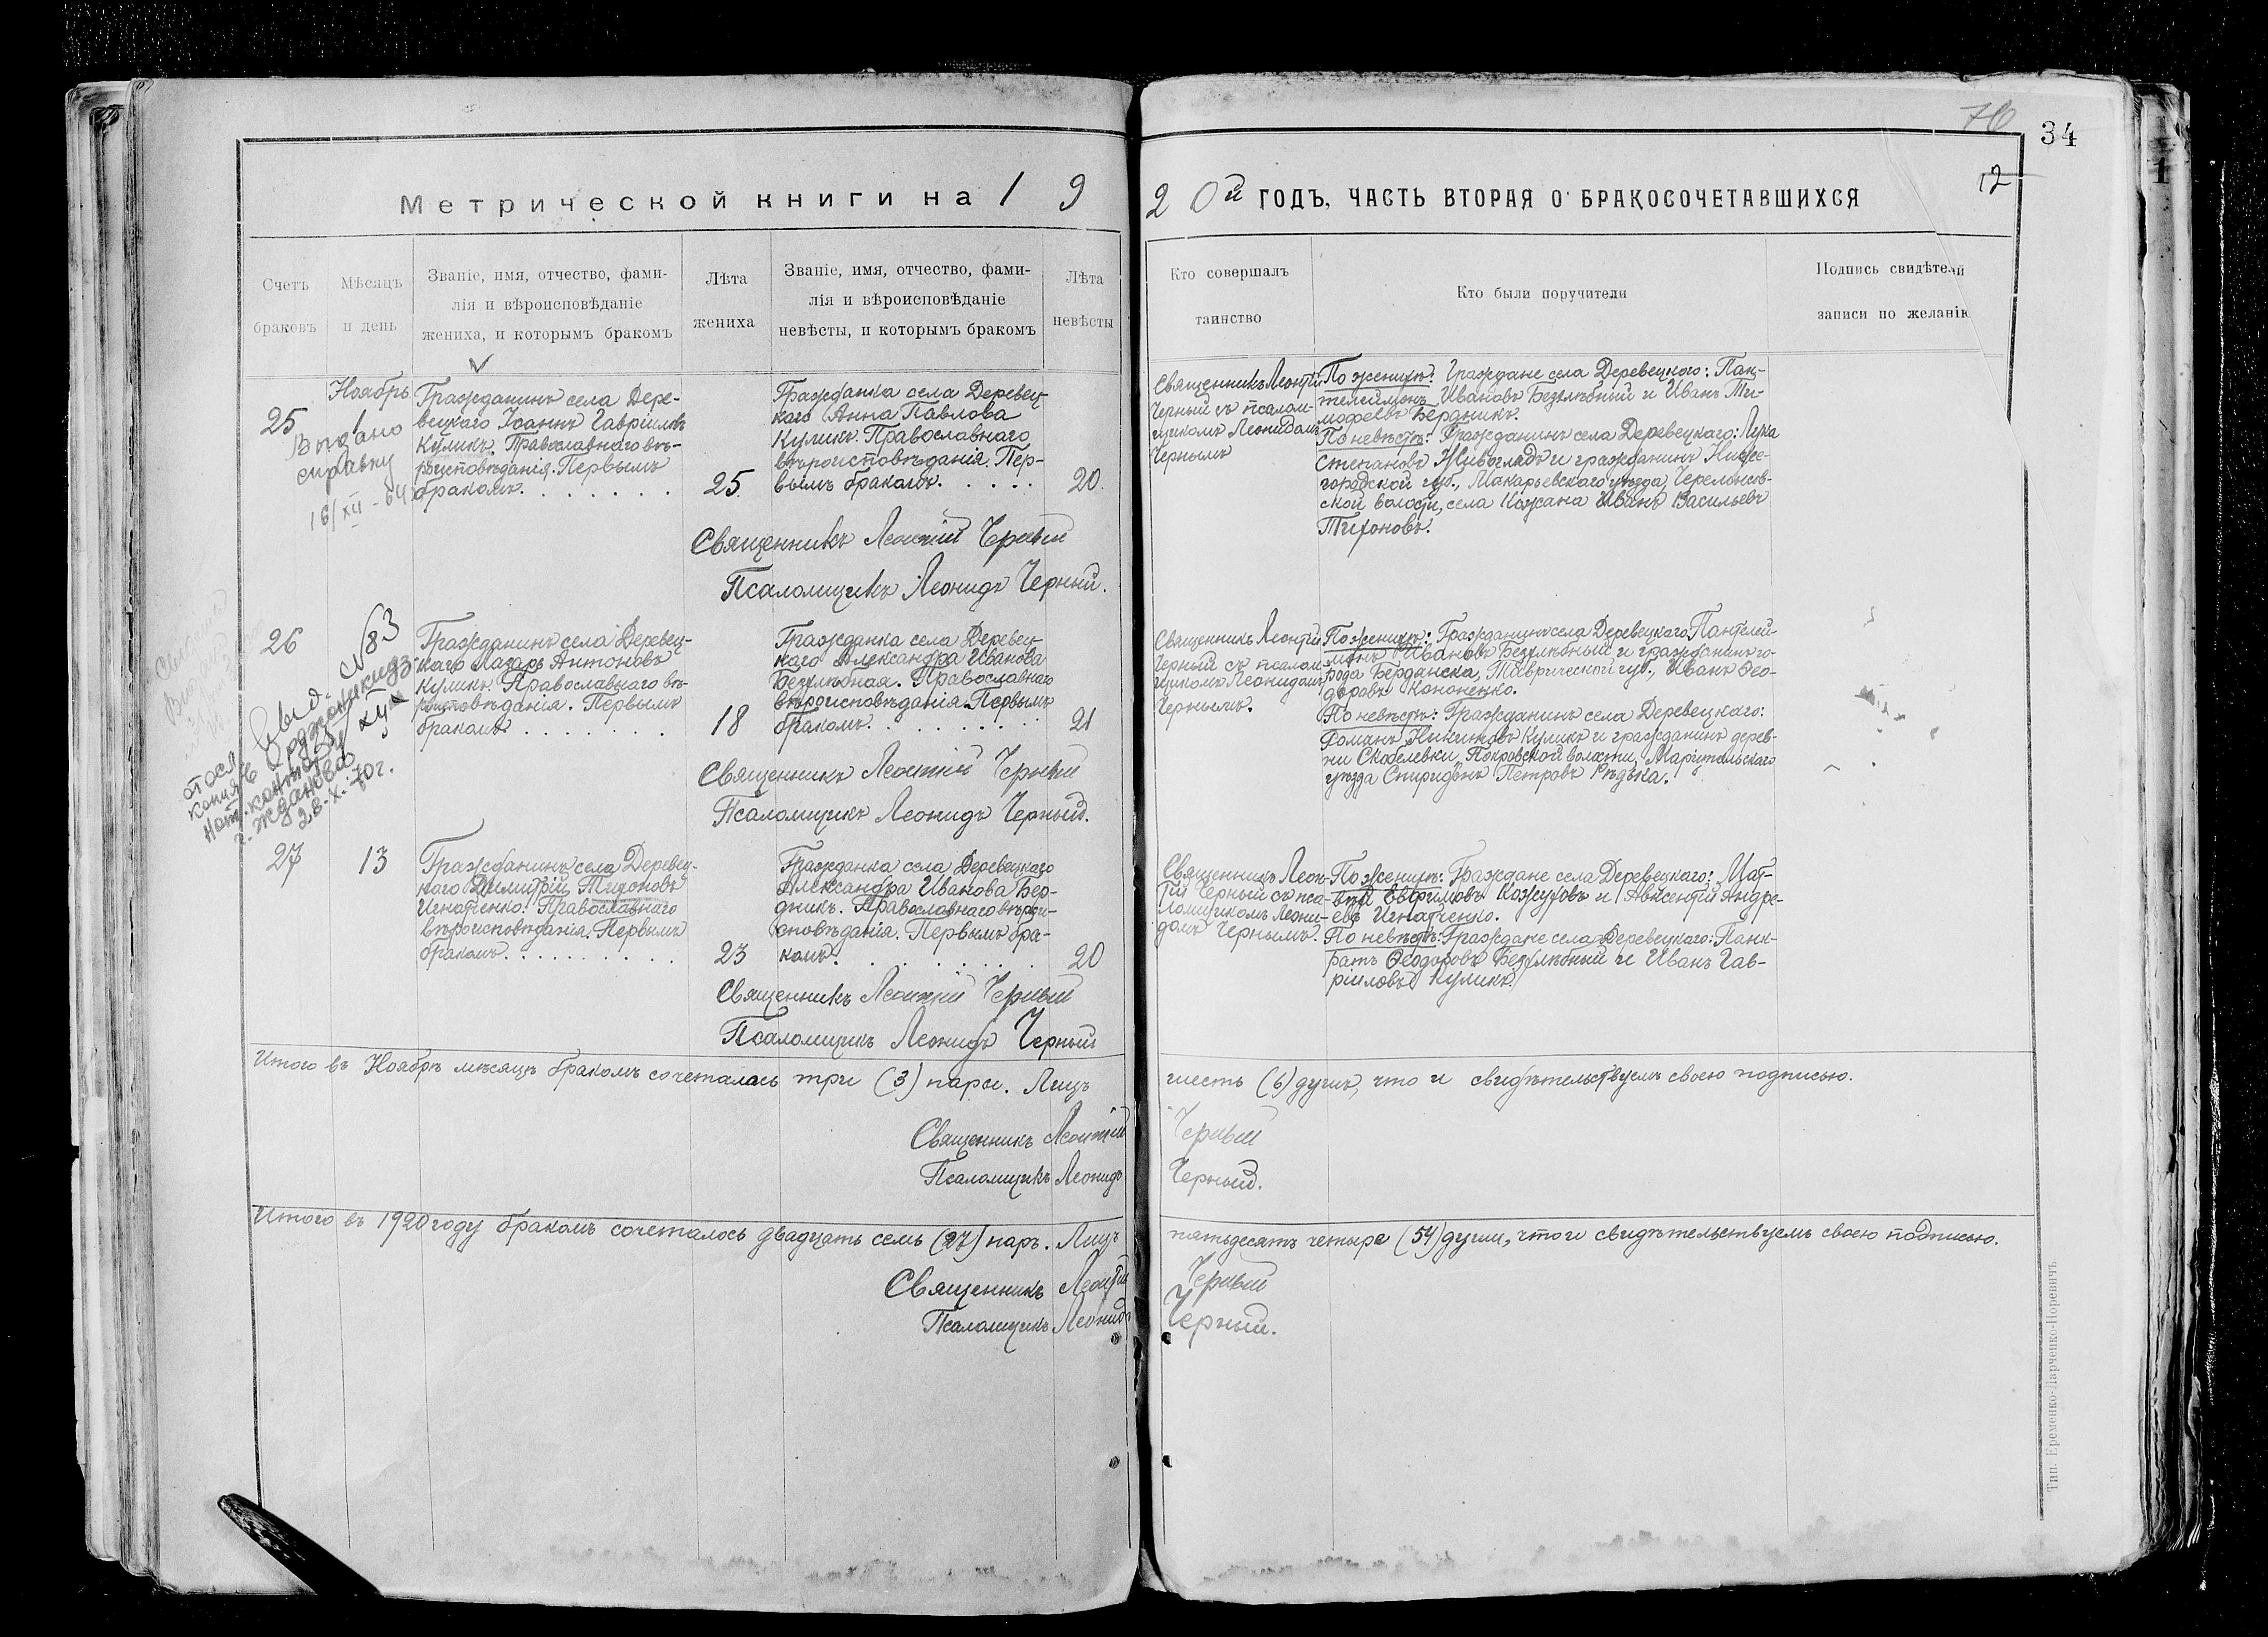 76
34
12
Метрической книги на 1 9
2 0й ГОДЪ, ЧАСТЬ ВТОРАЯ О БРАКОСОЧЕТАВШИХСЯ
Счетъ
браковъ
Мѣсяцъ
и день
Званіе, имя, отчество, фами-
лія и вѣроисповѣданіе
жениха, и которымъ бракомъ
Лѣта
жениха
Званіе, имя, отчество, фами-
лія и вѣроисповѣданіе
невѣсты, и которымъ бракомъ
Лѣта
невѣсты
Кто совершалъ
таинство
Кто были поручители
Подпись свидѣтелей
записи по желанію
25
Ноябрь
1
Выдано
справку
16/XII-64
Гражданинъ села Дере-
вецкаго Іоаннъ Гавріиловъ
Куликъ. Православнаго вѣ-
роисповѣданія. Первымъ
бракомъ.
25
Гражданка села Деревец-
каго Анна Павлова
Куликъ. Православнаго
вѣроисповѣданія. Пер-
вымъ бракомъ.
20.
Священникъ Леонтій Черный
Псаломщикъ Леонидъ Черный.
Священникъ Леонтій
Черный съ псалом-
щикомъ Леонидомъ
Чернымъ
По женихѣ: Граждане села Деревецкого: Пан-
телеймонъ Ивановъ Безулѣбный и Иванъ Ти-
мофеевъ Бердникъ.
По невѣстѣ: Гражданинъ села Деревецкаго: Лука
Степановъ Живогладъ и гражданинъ Ниже-
городской губ., Макарьевскаго уѣзда,
ской волости, села Иванъ Васильевъ
Тихоновъ.
26
Свид. №83
Орджоникидз.
отосл.
копия в
нот. контору
г. Жданова
28.X.70г.
Гражданинъ села Деревец-
каго Лазарь Антоновъ
Куликъ. Православнаго вѣ-
роисповѣданія. Первымъ
бракомъ.
18
Гражданка села Деревец-
каго Александра Иванова
Безулѣбная. Православнаго
вѣроисповѣданія. Первымъ
бракомъ.
21
Священникъ Леонтій Черный
Псаломщикъ Леонидъ Черный.
Священникъ Леонтій
Черный съ псалом-
щикомъ Леонидомъ
Чернымъ.
По женихѣ: Гражданинъ села Деревецкаго Пантелей-
монъ Ивановъ Безулѣбный и гражданинъ го-
рода Бердянска, Таврической губ., Иванъ Ѳео-
доровъ Кононенко.
По невѣстѣ: Гражданинъ села Деревецкаго:
Романъ Никитовъ Куликъ и гражданинъ дерев-
ни Скобелевки, Покровской волости, Маріупольскаго
уѣзда Спиридонъ Петровъ Рѣдька.
27
13
Гражданинъ села Деревец-
каго Димитрій Тихоновъ
Игнатченко. Православнаго
вѣроисповѣданія. Первымъ
бракомъ.
23
Гражданка села Деревецкаго
Александра Иванова Бер-
дникъ. Православнаго вѣрои-
сповѣданія. Первымъ бра-
комъ.
20
Священникъ Леонтій Черный
Псаломщикъ Леонидъ Черный
Священникъ Леон-
тій Черный съ пса-
ломщикомъ Леони-
домъ Чернымъ.
По женихѣ: Граждане села Деревецкаго: Мат-
вій Евфимовъ Кожуховъ и Авксентій Андре-
евъ Игнатченко.
По невѣстѣ: Граждане села Деревецкаго: Панк-
ратъ Ѳеодоровъ Безулѣбный и Иванъ Гав-
ріиловъ Куликъ.
Итого въ Ноябрѣ мѣсяцѣ бракомъ сочеталась три (3) пары. Лицъ
шесть (6) душъ, что и свидѣтельствуемъ своею подписью.
Священникъ Леонтій
Черный
Псаломщикъ Леонидъ
Черный.
Итого въ 1920 году бракомъ сочеталось двадцать семь (27) паръ. Лицъ
пятьдесятъ четыре (54) души, что и свидѣтельствуемъ своею подписью.
Священникъ Леонтій
Черный
Псаломщикъ Леонидъ
Черный.
Тип. Еременко-Ларченко-Норевичъ